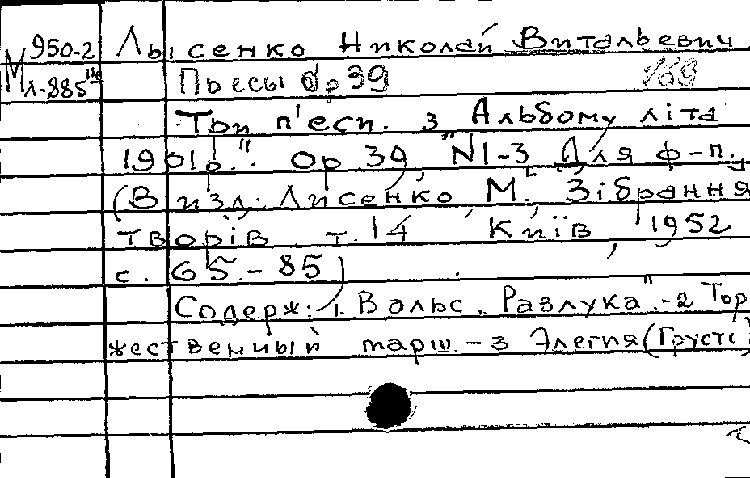 950-2 Лысенко Николай Витальевич
М л-885 Пьесы ор 39 169
Три п'еси. з Альбому літа
1901 р.". ор 39, №1-3 Для ф-п.
(В изд. Лисенко, М., Зібрання
творів т. 14 Київ, 1952
с. 65.-85)
Содерж: 1. Вальс „Разлука".-2 Тор
жественный марш.-3 Элегия (Грусть)